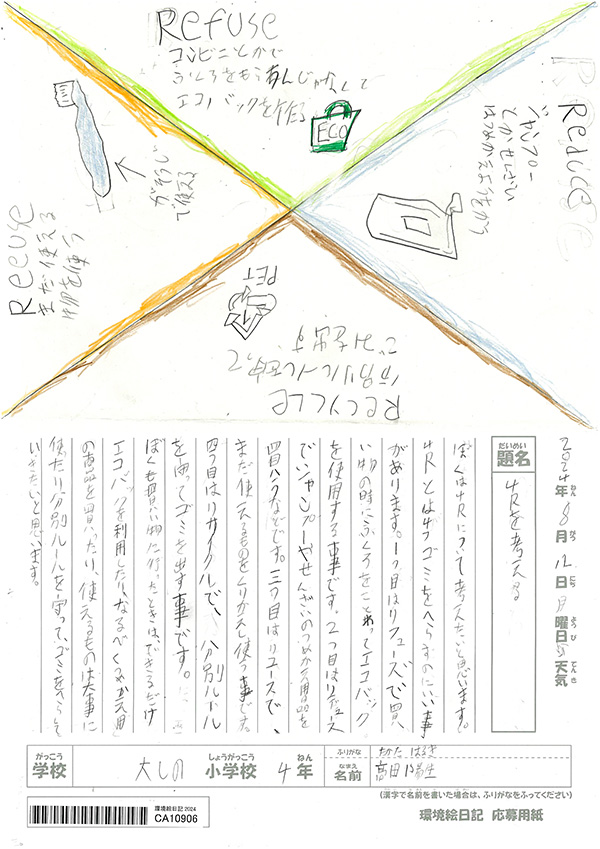 Refuse
コンビニとかで
ふくろをもらうんじゃなくて
エコバックを作る
ECO
Reduce
シャンプー
とかせんざい
はつめかえようをかう
Reuse
まだ使える
物を使う
がんばし
て使える
PET
Recycle
分別ルールを守って、
ごみを出す
2024年8月12日月曜日 天気
だいめい
題名
4Rを考える
ぼくは4Rについて考えたいと思います。
4Rとは4つゴミをへらすのにいい事
があります。1つ目はリフューズで買
い物の時にふくろをことわってエコバック
を使用する事です。2つ目はリデュース
でシャンプーやせんざいのつめかえ用品を
買うなどです。三つ目はリユースで、
まだ使えるものをくりかえし使う事です。
四つ目はリサイクルで、分別ルール
を守ってゴミを出す事です。
ぼくも買い物に行ったときは、できるだけ
エコバックを利用したり、なるべくつめかえ用
の商品を買ったり、使えるものは大事に
使ったり分別ルールを守って、ゴミをへらして
いきたいと思います。
がっこう
学校
大しの
しょうがっこう
小学校
4
ねん
年
ふりがな
たかた はるき
なまえ
名前
高田
(漢字で名前を書いた場合は、ふりがなをふってください)
環境絵日記 2024
CA10906
環境絵日記 応募用紙